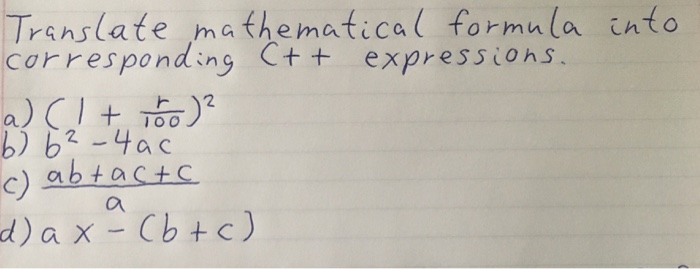 Translate mathematical formula into
corresponding C++ expressions.
a) (1 + r/100)²
b) b² - 4ac
c) ab+ac+c
a
d) a x - (b+c)